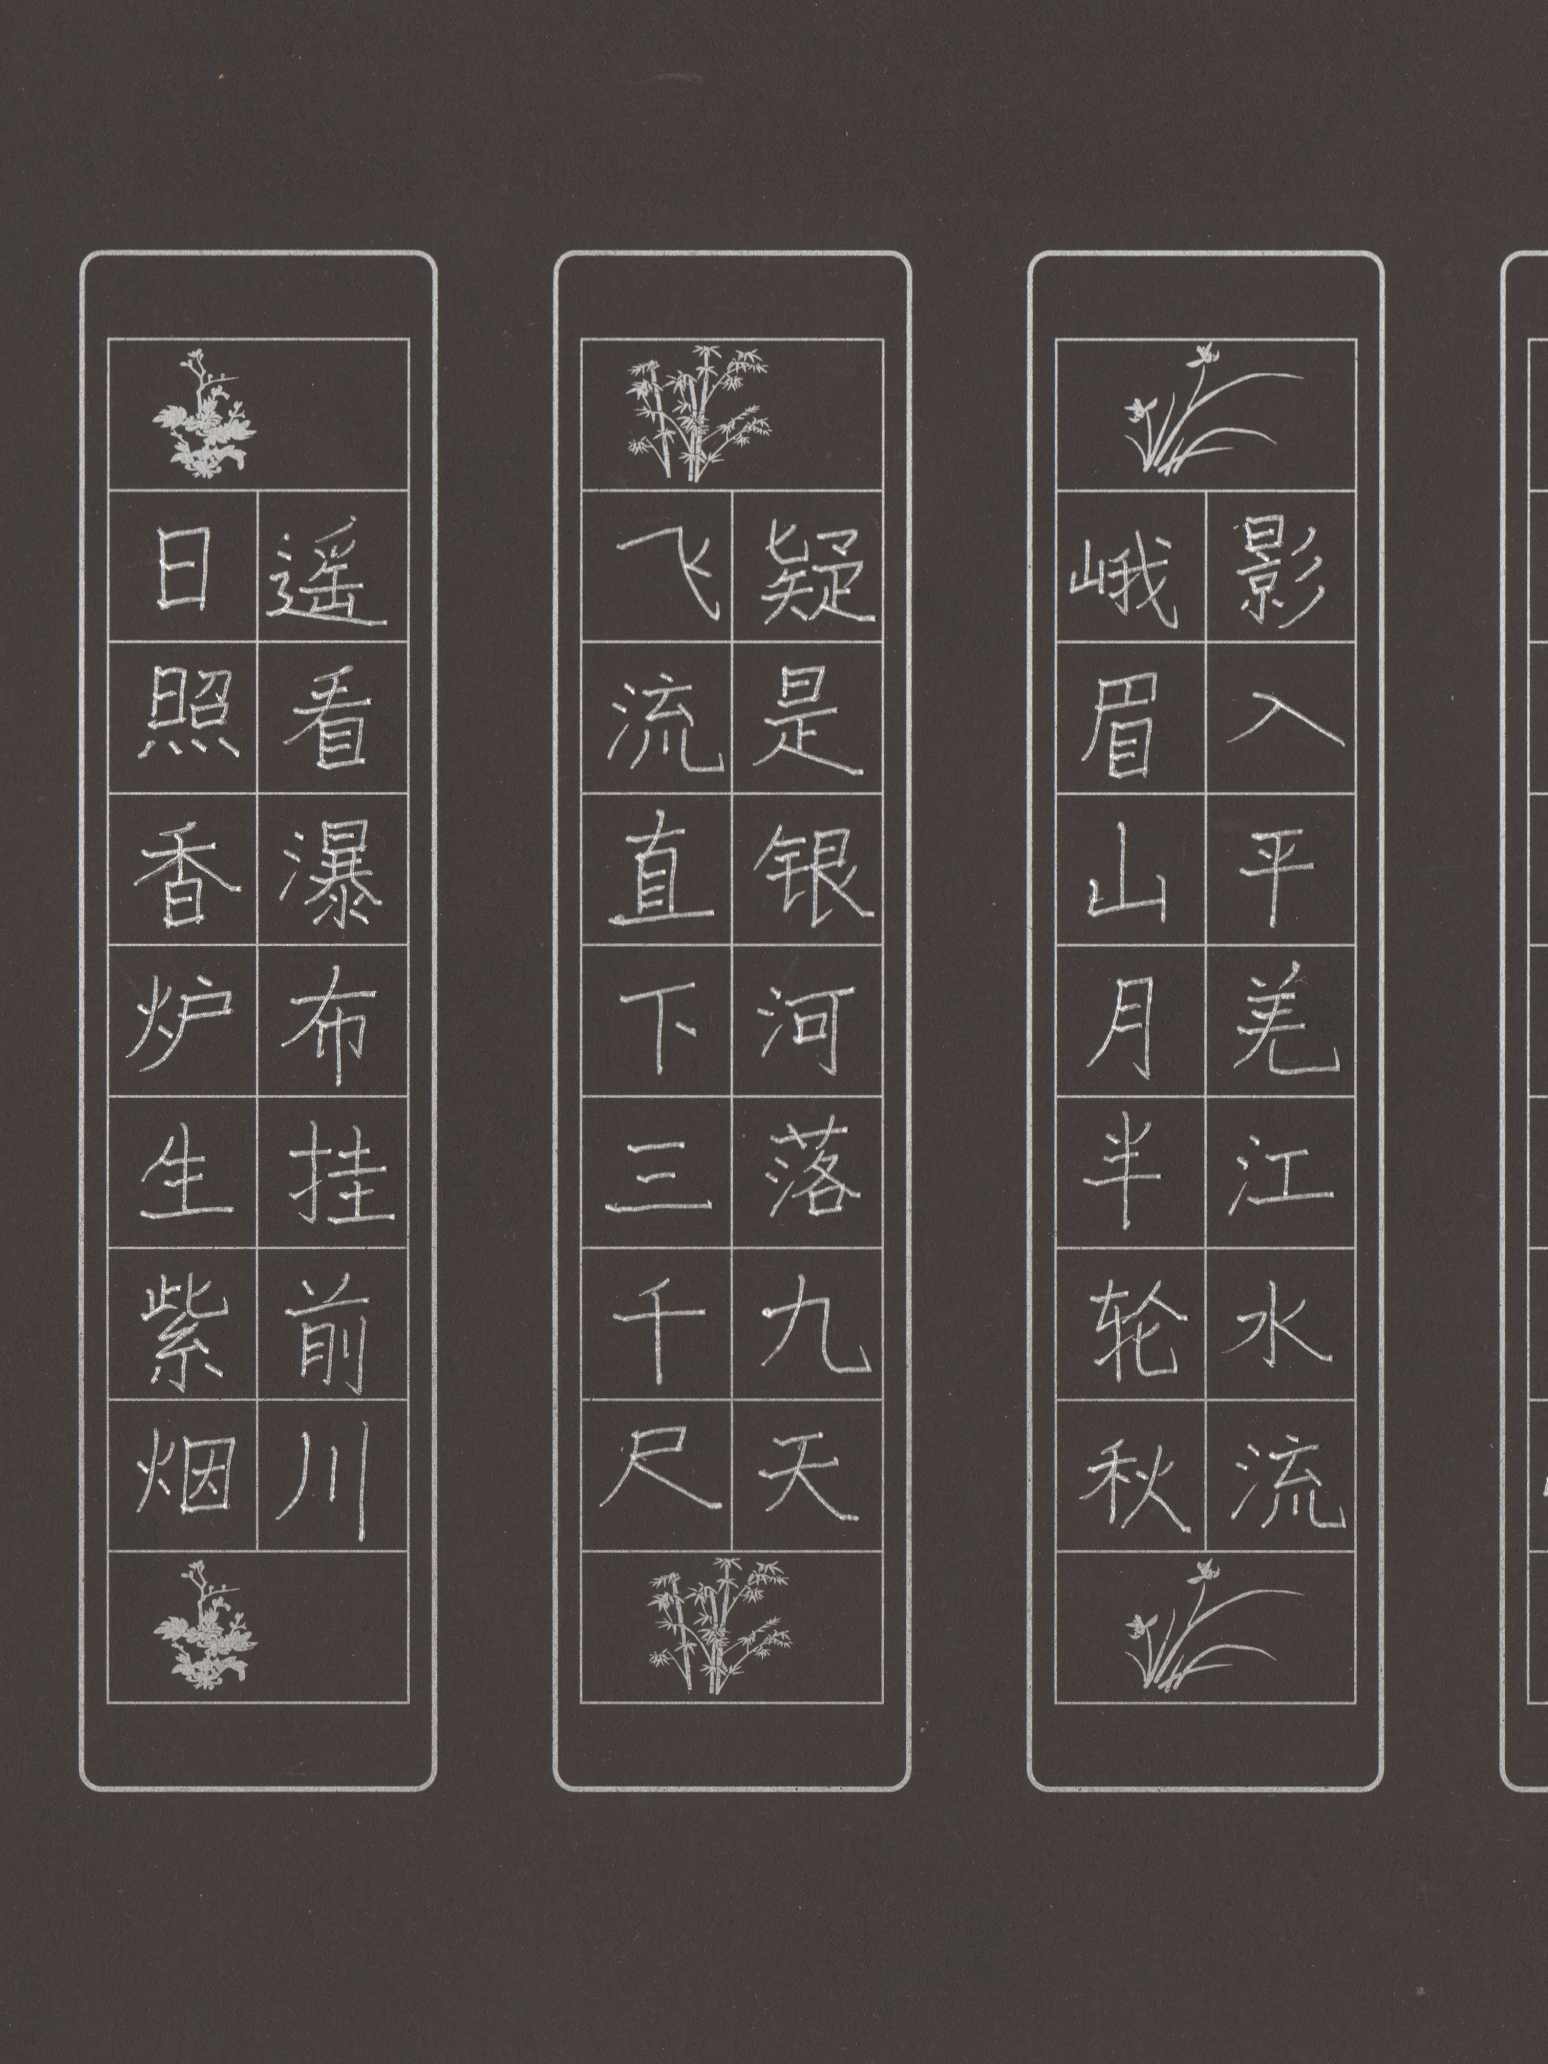 日照香炉生紫烟
遥看瀑布挂前川
飞流直下三千尺
疑是银河落九天
峨眉山月半轮秋
影入平羌江水流